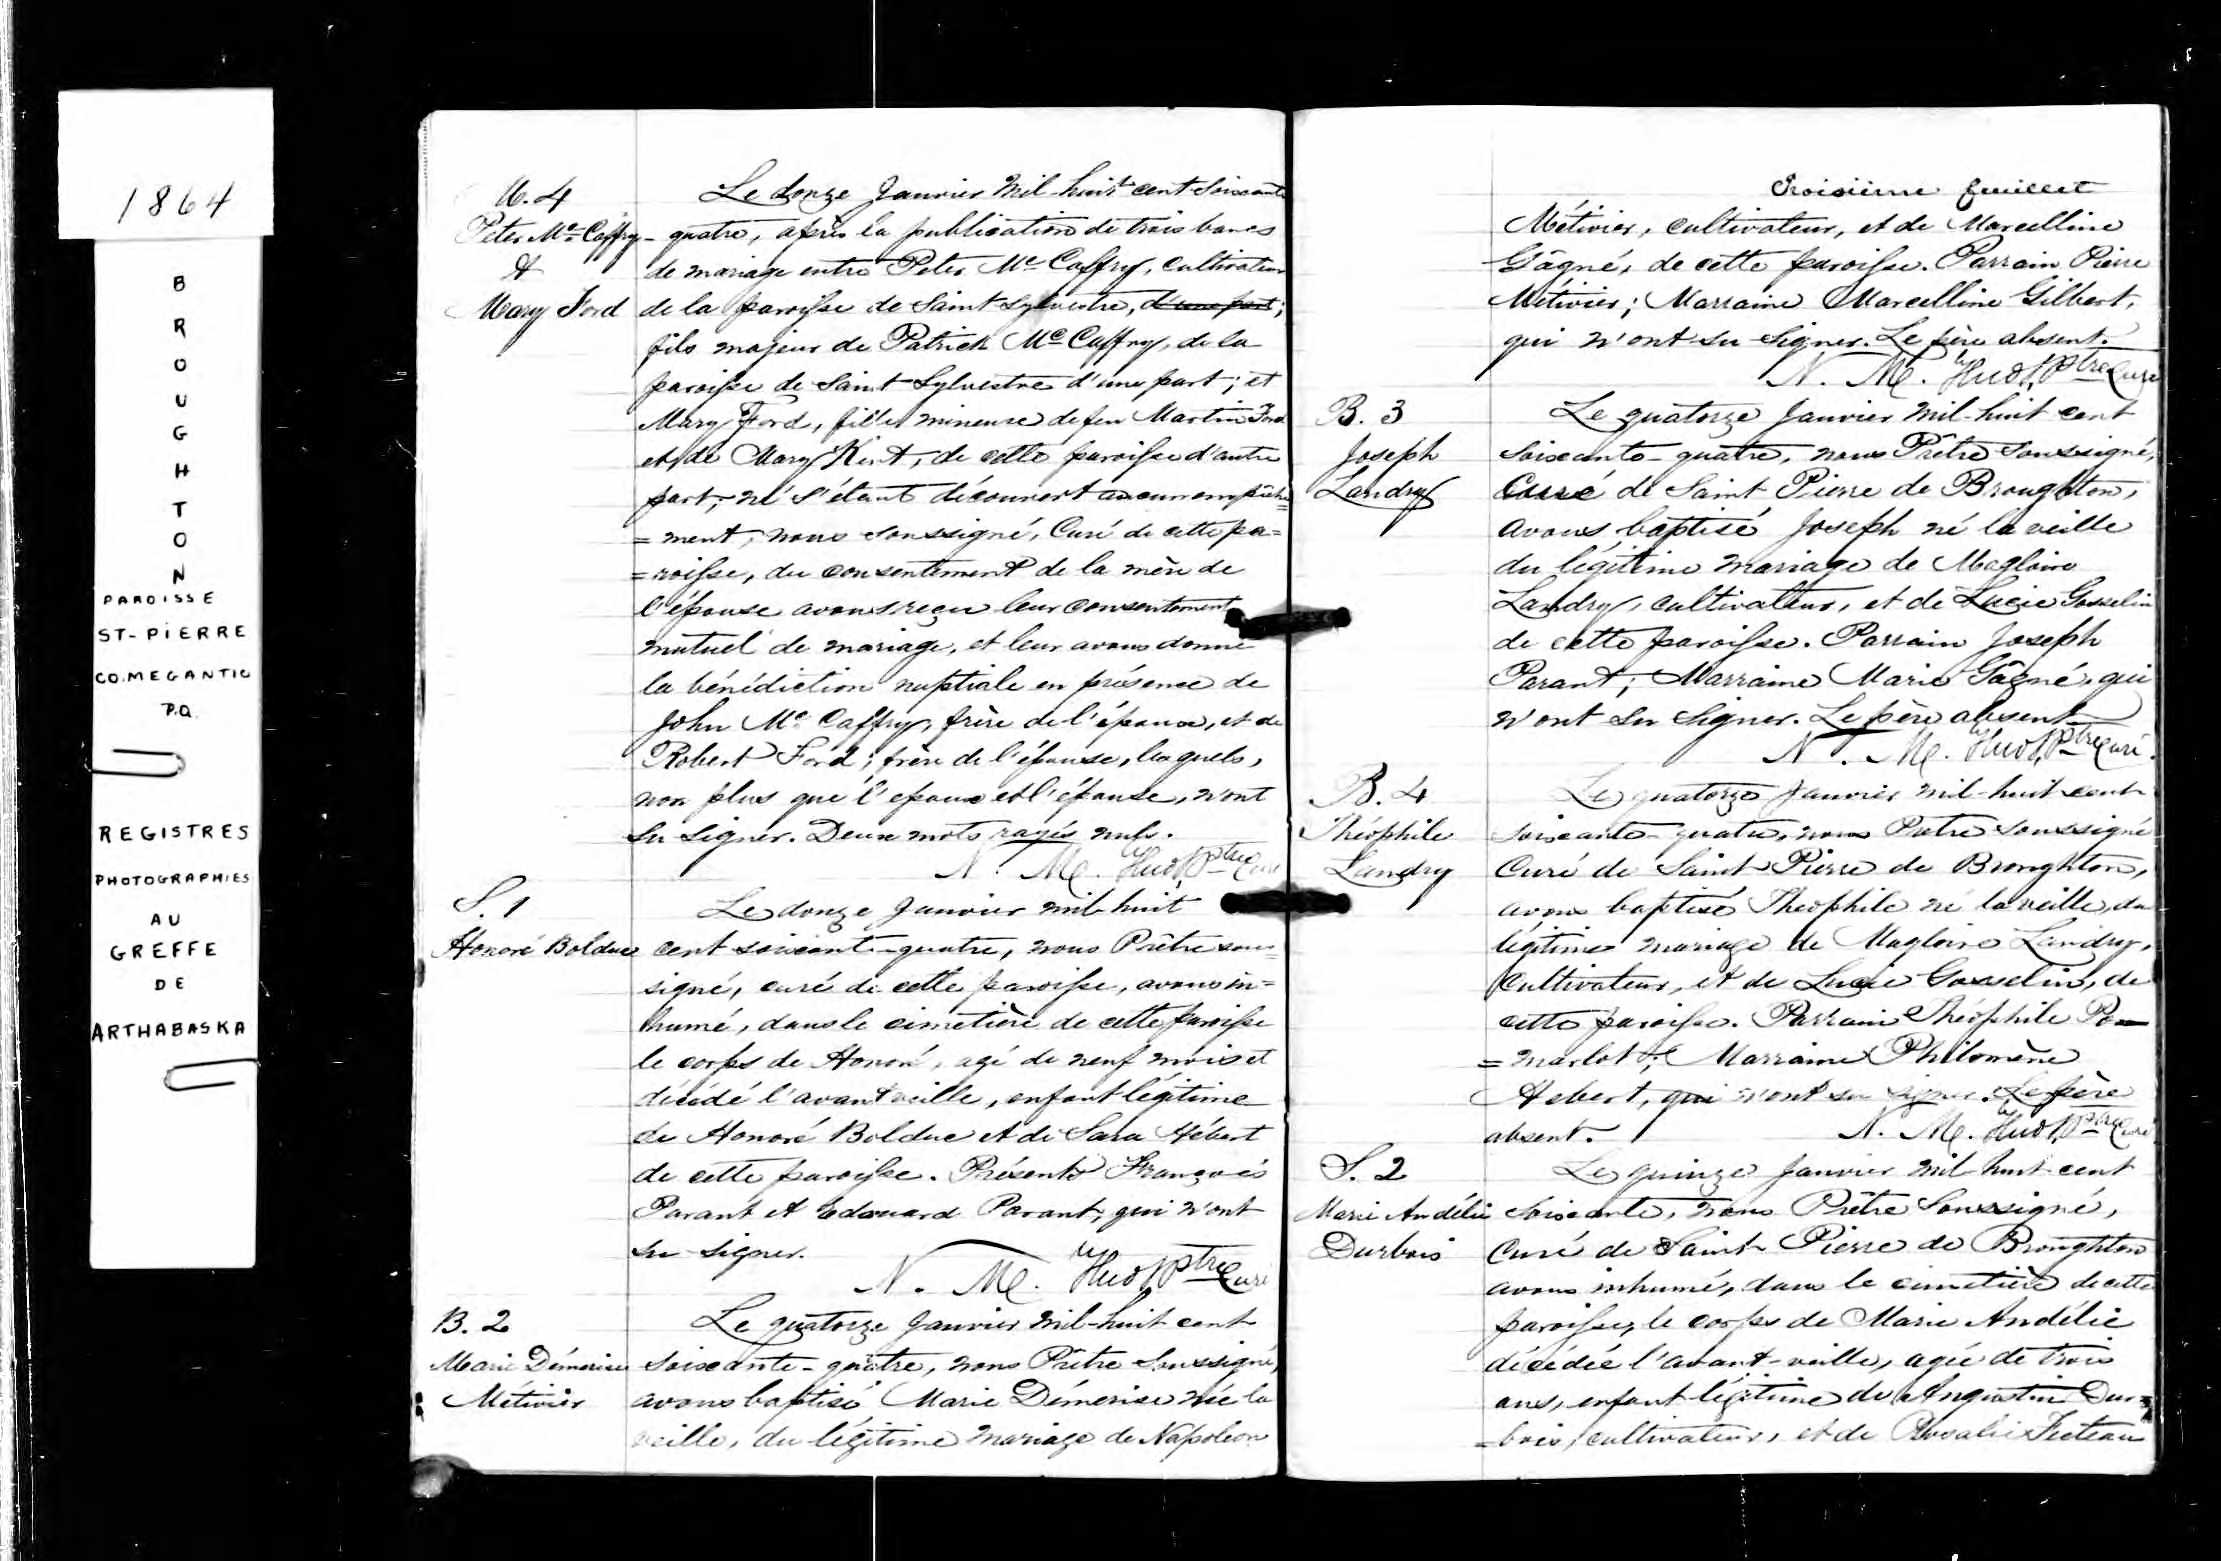 1864
BROUGHTON
PAROISSE
ST-PIERRE
CO. MEGANTIC
P.Q.
REGISTRES
PHOTOGRAPHIES
AU
GREFFE
DE
ARTHABASKA
M. 4
Peter Mc Caffry
&
Mary Ford
Le douze Janvier mil-huit cent soixante
quatre, après la publication de trois bancs
de mariage entre Peter Mc Caffry, cultivateur
de la paroisse de Saint Sylvestre, d'une part;
fils majeur de Patrick Mc Caffry, de la
paroisse de Saint Sylvestre d'une part; et
Mary Ford, fille mineure de feu Martin Ford
et de Mary Kent, de cette paroisse d'autre
part; ne s'étant découvert aucun empêche
= ment, nous soussigné, Curé de cette pa=
=roisse, du consentement de la mère de
l'épouse avons reçu leur consentement
mutuel de mariage, et leur avons donné
la bénédiction nuptiale en présence de
John Mc Caffry, frère de l'époux, et de
Robert Ford; frère de l'épouse, lesquels,
non plus que l'epoux et l'épouse, n'ont
su signer. Deux mots rayés nuls.
N. M. Huot, Ptre Curé
S. 1
Honoré Bolduc
Le douze Janvier mil-huit
cent soixante-quatre, nous Prêtre sous=
signé, curé de cette paroisse, avons in=
humé, dans le cimetière de cette paroisse
le corps de Honoré, agé de neuf mois et
décédé l'avant veille, enfant légitime
de Honoré Bolduc et de Sara Hébert
de cette paroisse. Présents François
Parant et Edouard Parant, qui n'ont
su signer.
N. M. Huot Ptre Curé
B. 2
Marie Démerise
Métivier
Le quatorze Janvier mil-huit cent
soixante-quatre, nous Prêtre soussigné,
avons baptisé Marie Démerise née la
veille, du légitime mariage de Napoléon
Troisième feuillet
Métivier, cultivateur, et de Marcelline
Gâgné, de cette paroisse. Parrain Pierre
Métivier; Marraine Marcelline Gilbert,
qui n'ont su signer. Le père absent.
N. M. Huot, Ptre Curé
B. 3
Joseph
Landry
Le quatorze Janvier mil-huit cent
soixante-quatre, nous Prêtre soussigné,
Curé de Saint Pierre de Broughton,
avons baptisé Joseph né la veille
du légitime mariage de Magloire
Landry, cultivateur, et de Lucie Gosselin
de cette paroisse. Parrain Joseph
Parant; Marraine Marie Gâgné, qui
n'ont su signer. Le père absent
N. M. Huot, Ptre Curé.
B. 4
Théophile
Landry
Le quatorze Janvier mil-huit cent
soixante-quatre, nous Prêtre soussigné
Curé de Saint Pierre de Broughton,
avons baptisé Théophile né la veille, du
légitime mariage de Magloire Landry,
cultivateur, et de Lucie Gosselin, de
cette paroisse. Parrain Théophile
=marlot; Marraine Philomène
Hebert, qui n'ont su signer. Le père
absent. N. M. Huot, Ptre Curé
S. 2
Marie Andélie
Durbois
Le quinze Janvier mil huit-cent
soixante, nous Prêtre Soussigné,
Curé de Saint Pierre de Broughton
avons inhumé, dans le cimetière de cette
paroisse, le corps de Marie Andélie
décédée l'avant-veille, agée de trois
ans, enfant légitime de Augustin Dur=
=bois, cultivateur, et de Rosalie Fecteau